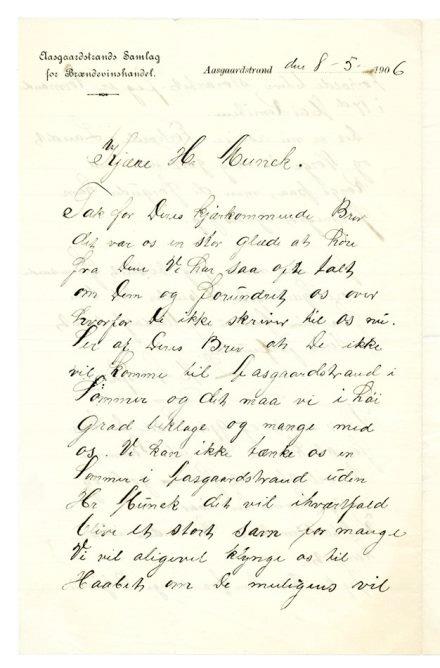 Aasgaardstrands Samlag
for Brændevinshandel.
Aasgaardstrand den 8 - 5 - 1906
Kjære Hr Munck.
Tak for Deres kjærkommende Brev
det var os en stor glæde at høre
fra Dem. Vi har saa ofte talt
om Dem og forundret os over
hvorfor De ikke skriver til os nu.
Ser af Deres Brev at De ikke
vil komme til Aasgaardstrand i
Sommer og det maa vi i høi
Grad beklage og mange med
os. Vi kan ikke tænke os en
Sommer i Aasgaardstrand uden
Hr Munck det vil ihværtfald
blive et stort savn for mange
Vi vil aligevel klynge os til
Haabet om De muligens vil